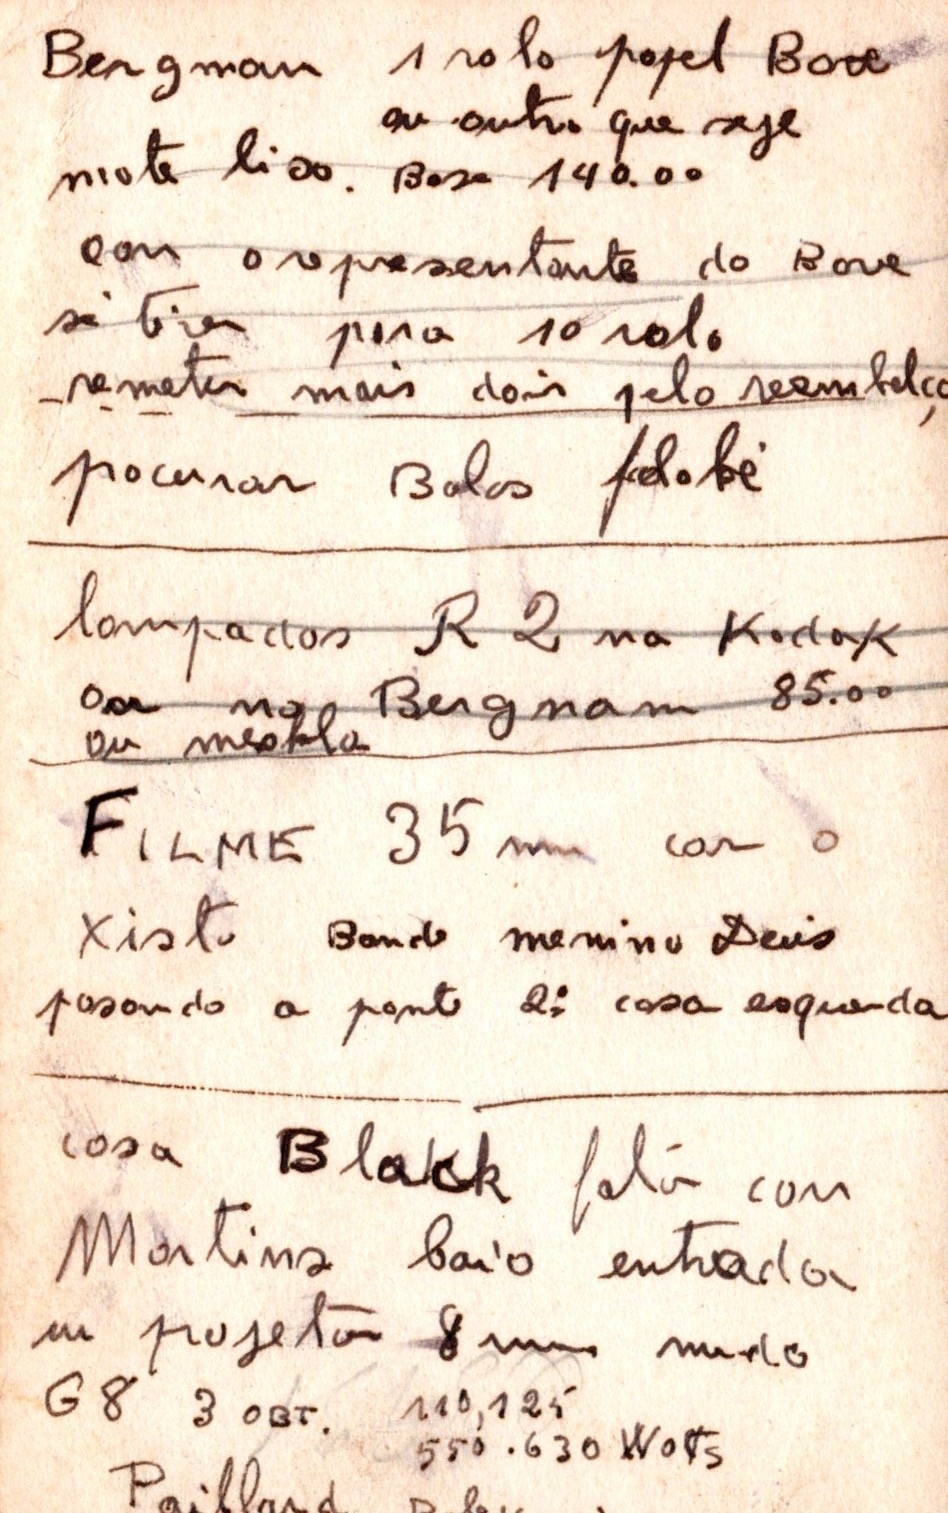 Bergman 1 rolo papel Bove
ou outro que seje
mate liso. Base 140.00
con o representante do Bove
sé tirar para 10 rolo
remeter mais dois pelo reembolço
pocurar Bolos
lampadas R 2 na Kodak
ou na Bergnam 85.00
ou mesbla
FILME 35 mm con o
Xisto Bonde menino Deus
pasando a ponte 2ª casa esquerda
casa Black falár con
Martins baio entrada
un projetôr 8 mm mudo
G8 3 OBT. 110,125
550.630 Wots
Paillard